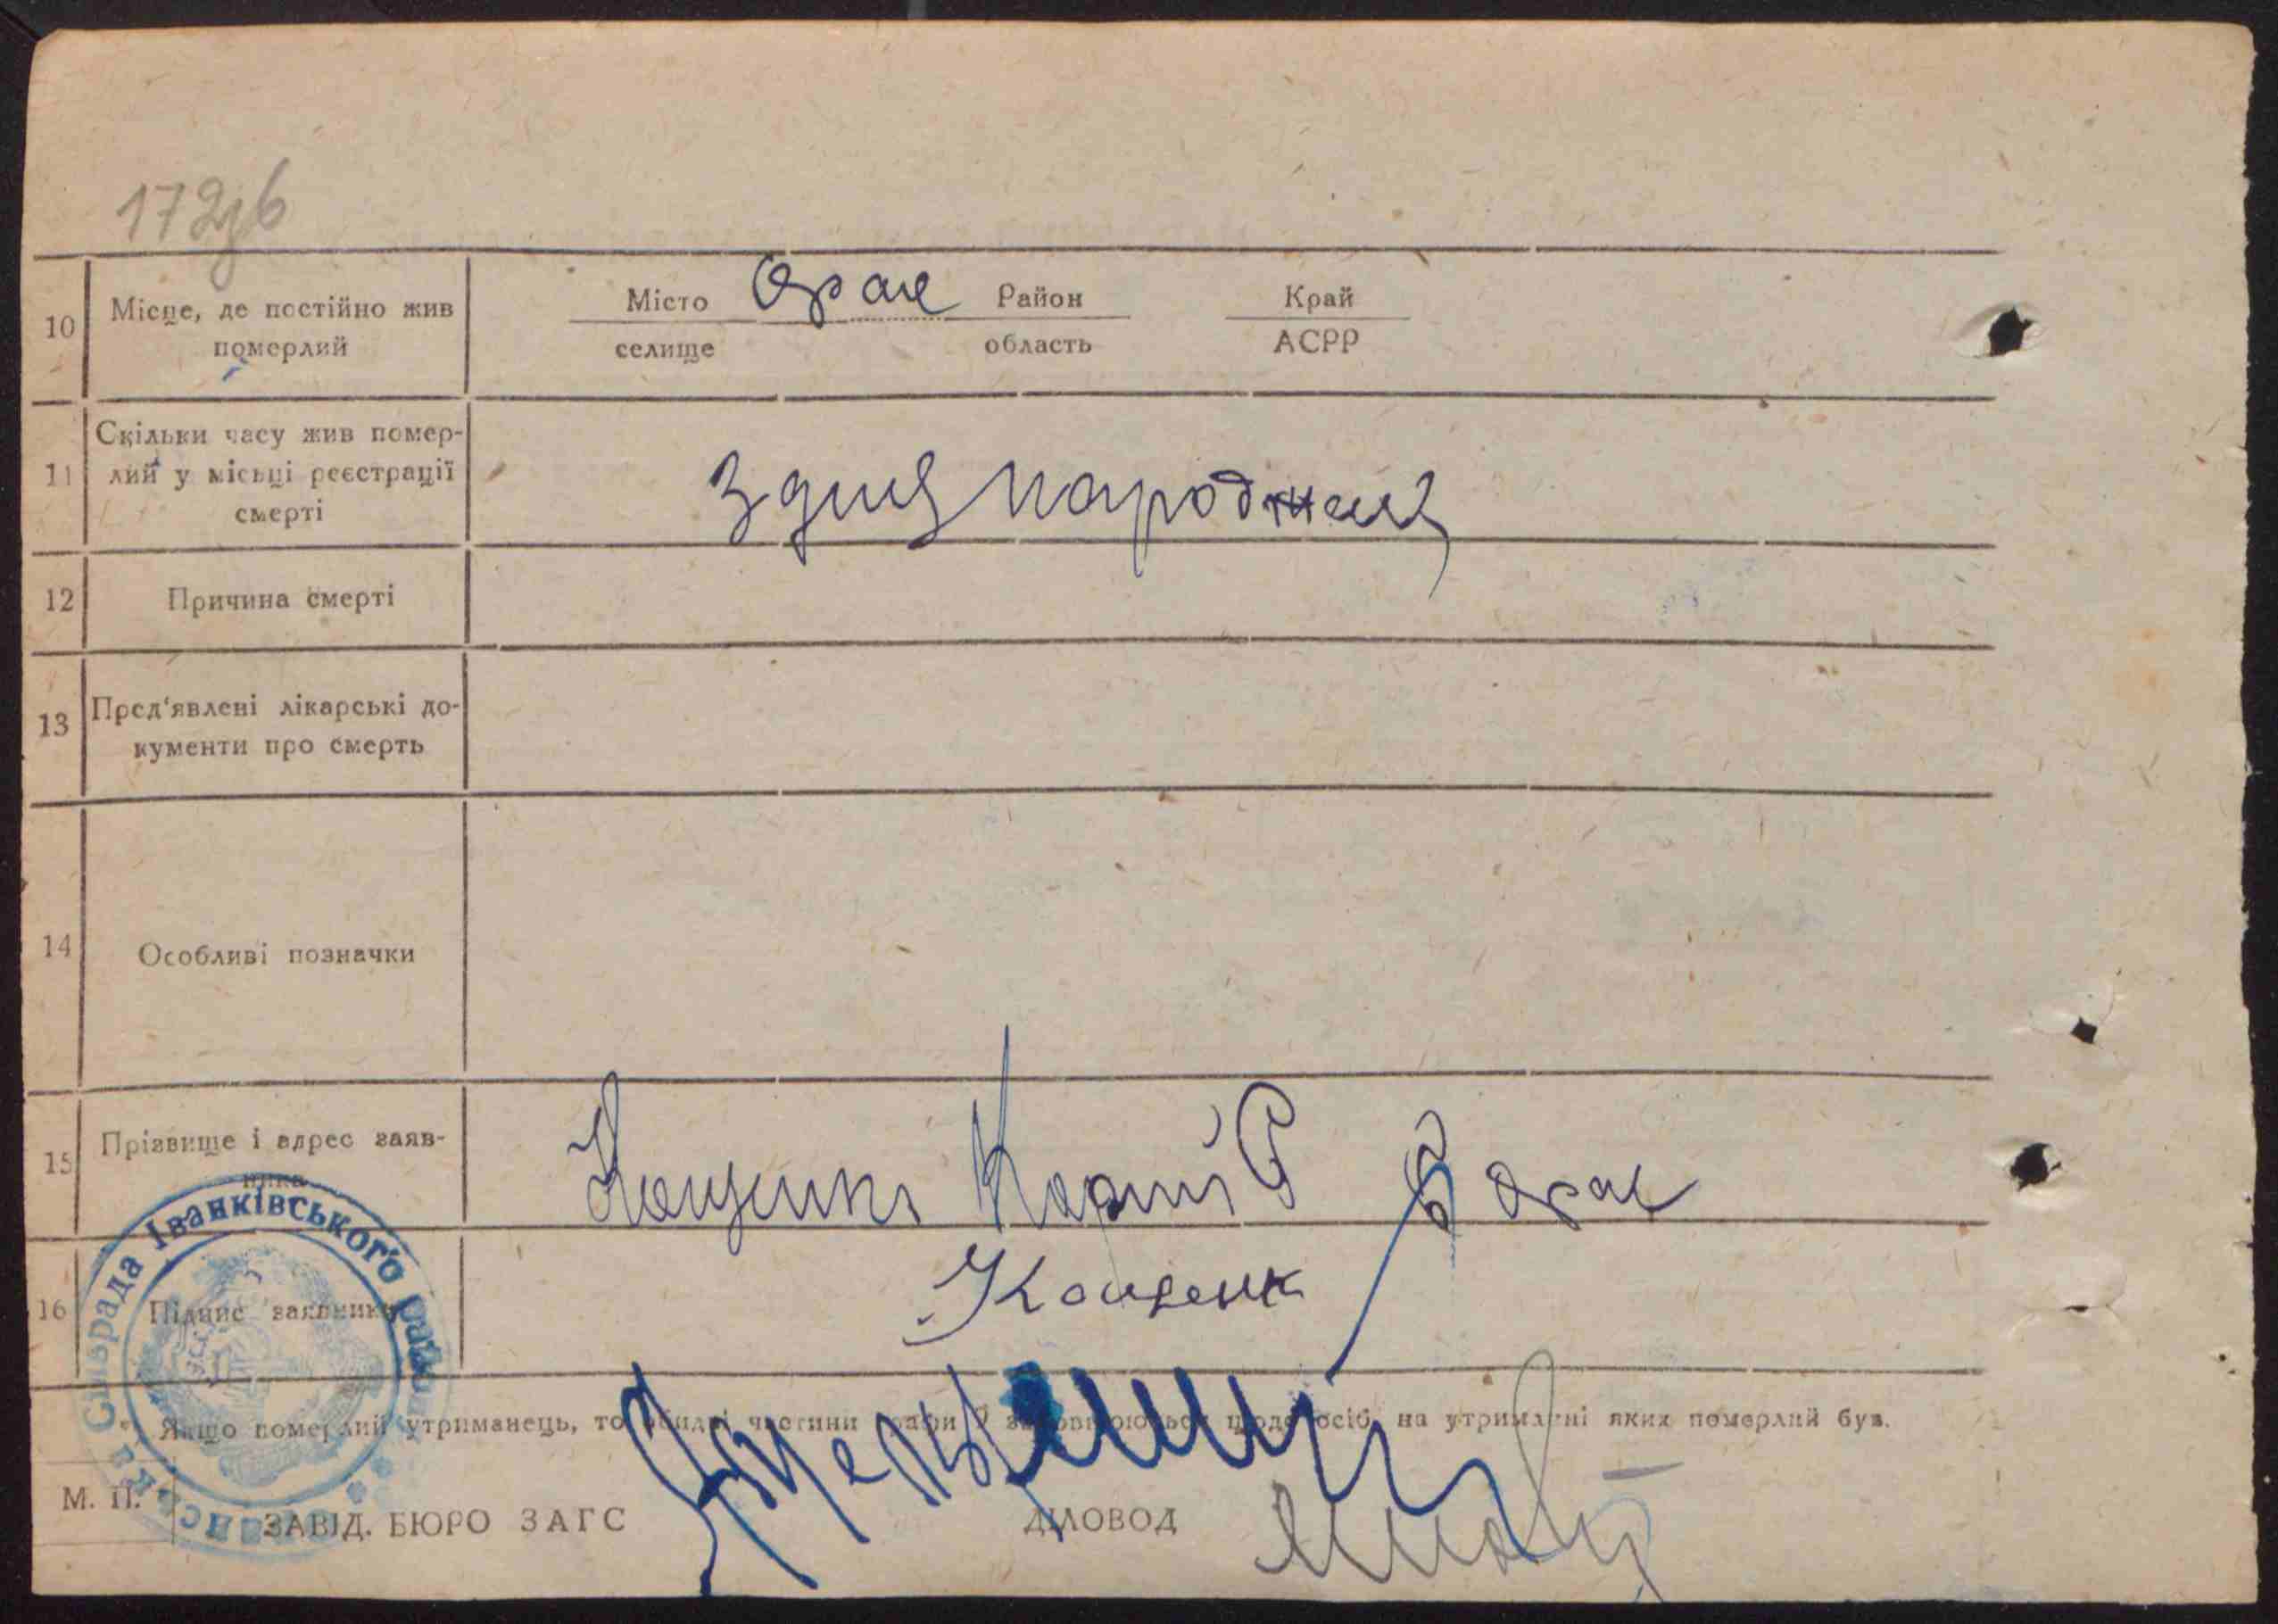 10 Місце, де постійно жив померлий
Місто Оране Район Край
селище область АСРР
11 Скільки часу жив помер-
лий у місьці реєстрації
смерті
З дня народженя
12 Причина смерті
13 Пред'явлені лікарські до-
кументи про смерть
14 Особливі позначки
15 Прізвище і адрес заяв-
ника
16 Підпис заявника
Сільрада Іванківського району
Якщо померлий утриманець, то обидві частини графи 9 заповнюються щодо осіб, на утриманні яких померлий був.
М. П.
ЗАВІД. БЮРО ЗАГС ДІЛОВОД